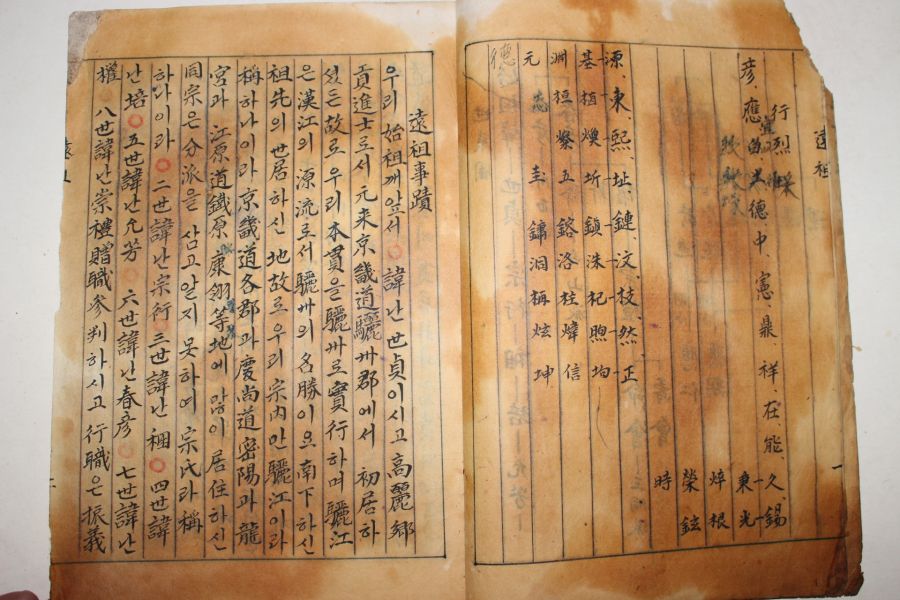 行烈
彦、應 德中、憲、鼎、祥、在、能、久、錫
秉光
焠根
榮鉉
時
源、東、熙、址、鏈、汶、枝、然、正
基植煥圻鎭洙杞煦均
洞桓燦五鉻洛柱煒信
元 圭鏞泪柄炫坤
遠祖
遠祖事蹟
우리 始祖깨앞서 諱난世貞이시고 高麗鄕
貢進士로서 元来京畿道驪州郡에서 初居하
섯든故로우리本貫을驪州로實行하며驪江
은漢江의 源流로서驪州의名勝이으南下하신
祖先의世居하신 地故로우리 宗內만驪江이라
稱하나이라京畿道各郡과慶尚道密陽과龍
宮과 江原道鐵原康翎等地에 많이居住하신
同宗은分派을 삼고알지못하여 宗氏라稱
하나이라 二世諱난宗行三世諱난稇 四世諱
난培 五世諱난允芳 六世諱난春彦 七世諱난
權 八世諱난崇禮贈職參判하시고 行職은振義